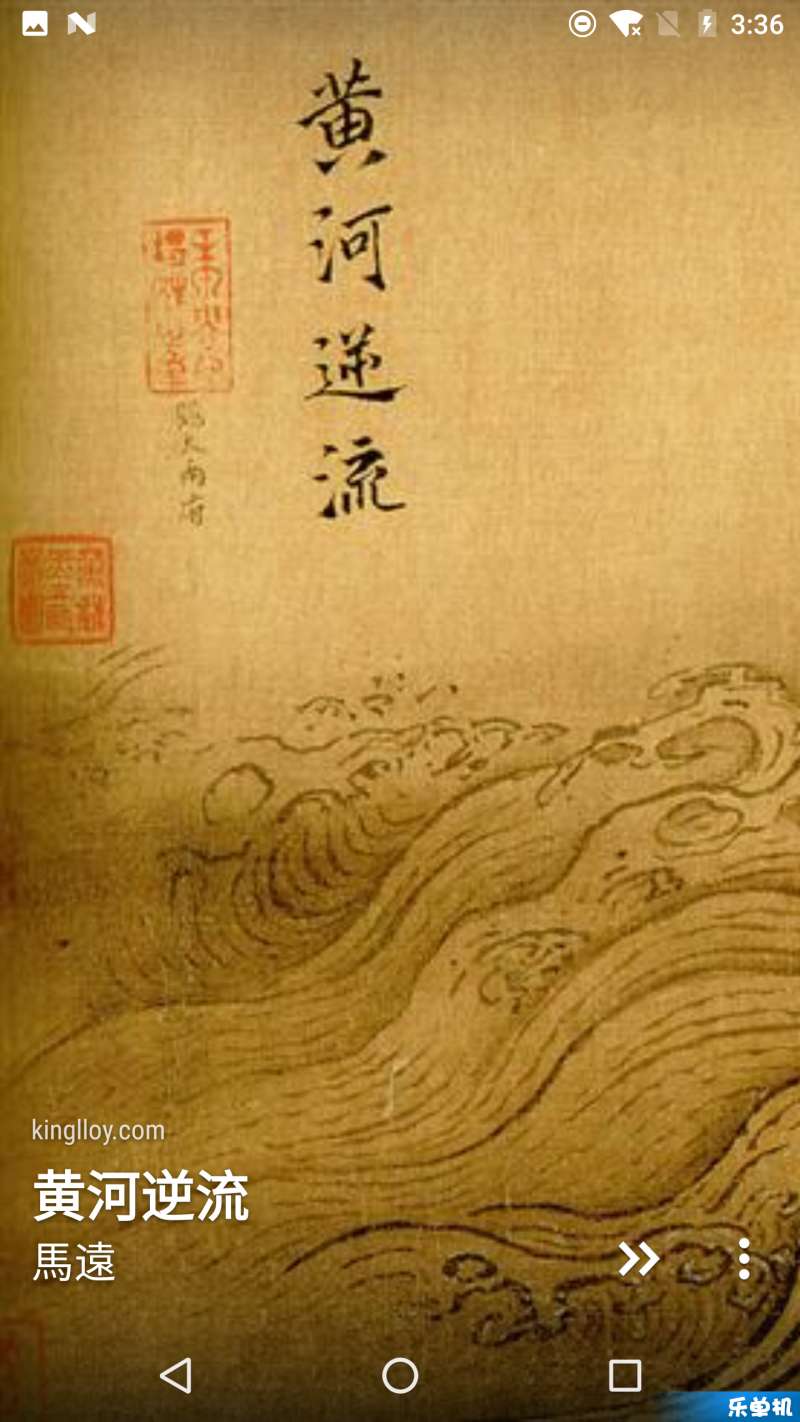 3:36
黄河逆流
kinglloy.com
黄河逆流
馬遠
乐单机